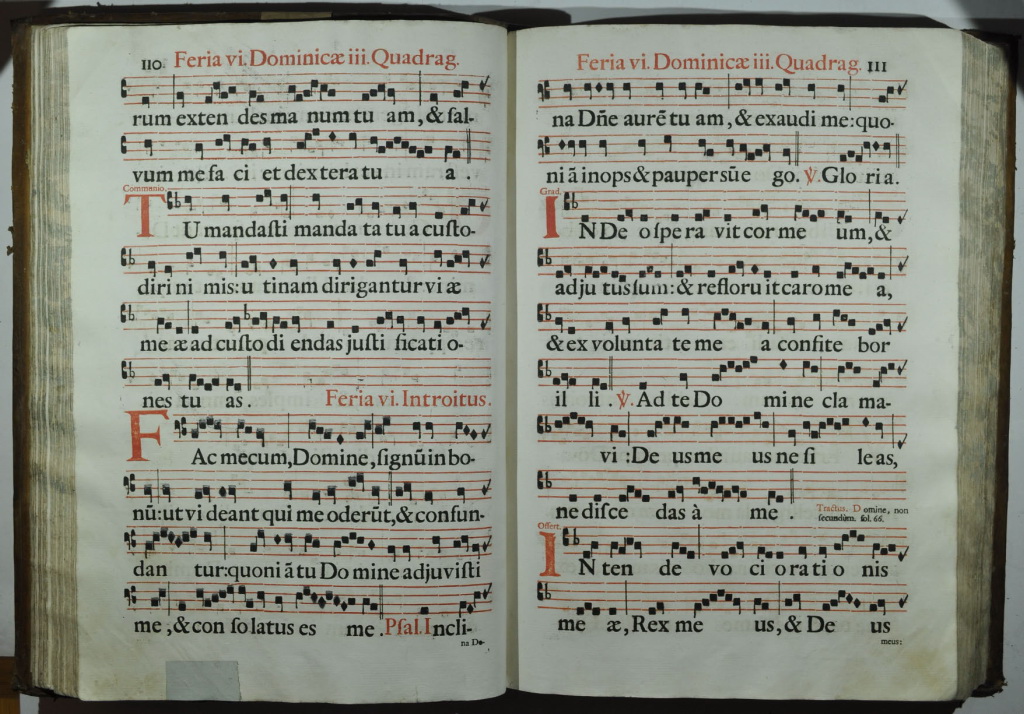 110. Feria vi. Dominicæ iii. Quadrag.
rum exten des ma num tu am, & sal-
vum me fa ci et dextera tu a
Communio.
TU mandasti manda ta tu a custo-
diri ni mis: u tinam dirigantur vi æ
me æ ad custo di endas justi ficati o-
nes tu as. Feria vi. Introitus.
FAc mecum, Domine, signũ in bo-
nũ: ut vi deant qui me oderũt, & confun-
dan tur: quoni ã tu Do mine adjuvisti
me, & con so latus es me. Psal. Incli-
na Do-
Feria vi. Dominicæ iii. Quadrag. 111
na Dñe aurẽ tu am, & exaudi me: quo-
ni ã inops & pauper sũe go. ℣. Glo ri a.
Grad.
IN De o spe ra vit cor me um, &
adju tus sum: & reflo ru it caro me a,
& ex volunta te me a confite bor
il li. ℣. Ad te Do mi ne cla ma-
vi: De us me us ne si le as,
ne disce das à me. Tractus. Domine, non
secundùm. fol. 66.
Offert.
IN ten de vo ci orati o nis
me æ, Rex me us, & De us
meus: